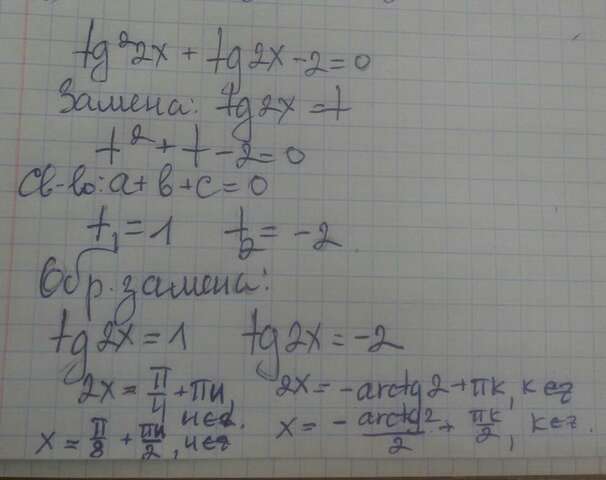 tg²2x + tg2x - 2 = 0
Замена: tg2x = t
t² + t - 2 = 0
Св-во: a + b + c = 0
t₁ = 1 t₂ = -2
Обр. замена:
tg2x = 1 tg2x = -2
2x = π/4 + πn, n∈z. 2x = -arctg2 + πk, k∈z
x = π/8 + πn/2, n∈z x = -arctg2/2 + πk/2, k∈z.